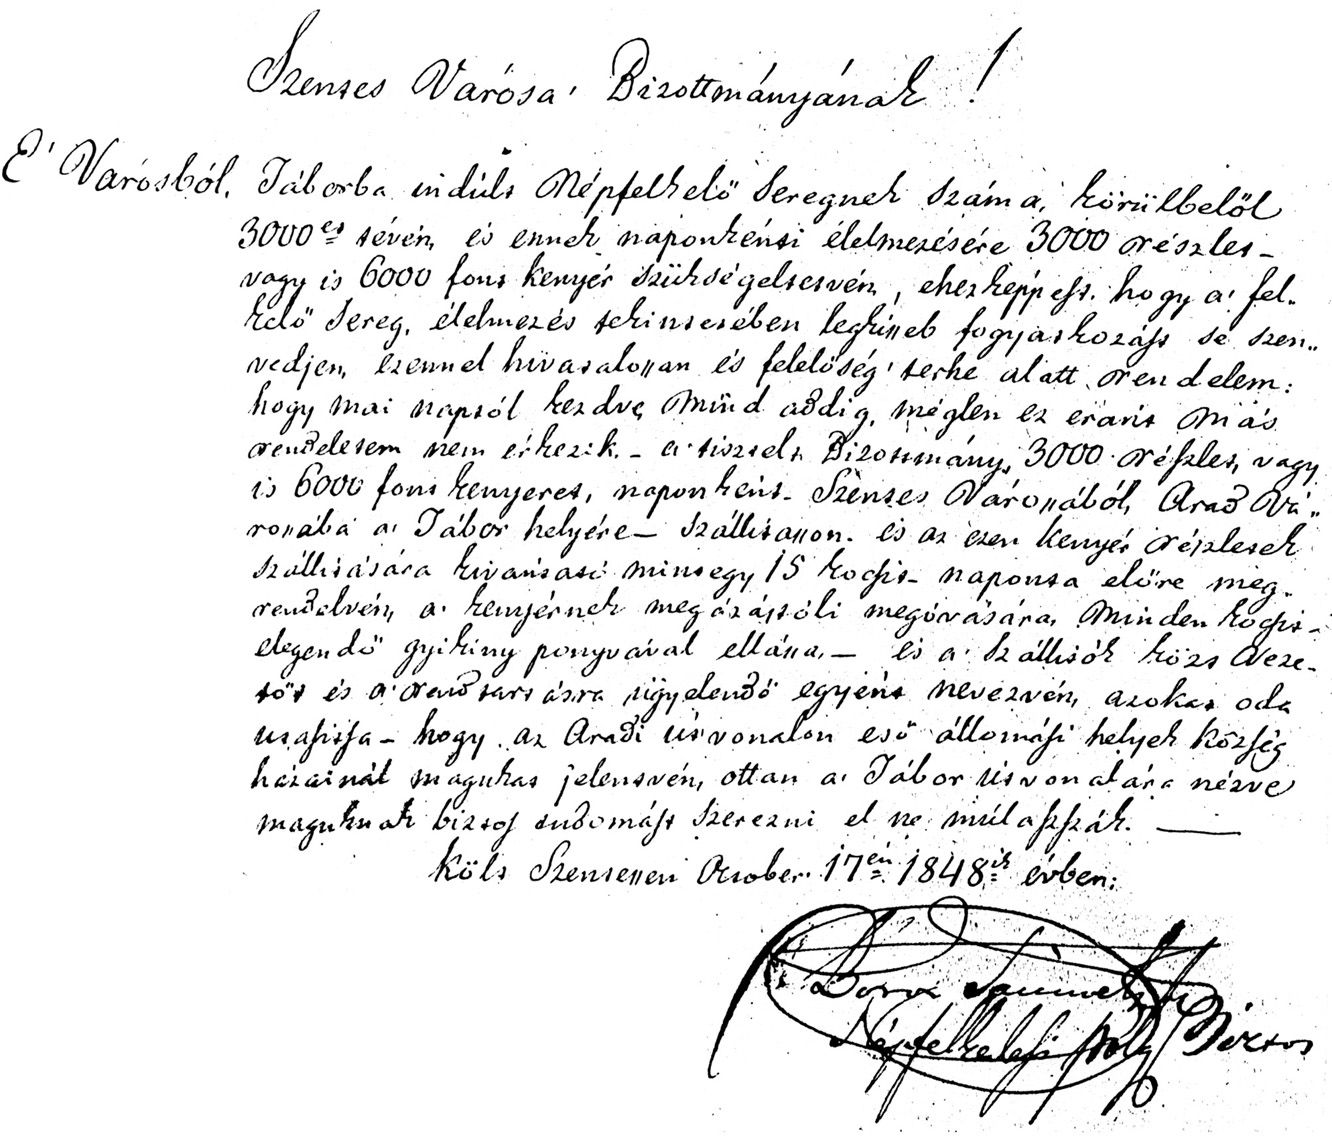 Szentes Városa' Bizottmányának!
E' Városból, Táborba indúlt Népfelkelő Seregnek száma, körülbelől
3000et tévén, és ennek naponkénti élelmezésére 3000 részlet –
vagy is 6000 font kenyér szükségeltetvén, ehezképpest, hogy a' fel-
kelő Sereg, élelmezés tekintetében legkissebb fogyatkozást se szen-
vedjen, ezennel hivatalossan és felelőség' terhe alatt rendelem:
hogy mai naptól kezdve Mind addig, méglen ez eránt más
rendeletem nem érkezik. – a' tisztelt Bizottmány, 3000 részlet, vagy
is 6000 font kenyeret, naponként – Szentes Várossából, Arad Vá-
rossába a' Tábor helyére – szállitasson. és az ezen kenyér részletek
szállitására kivántató mintegy 15 kocsit – naponta előre meg-
rendelvén, a' kenyérnek megázástóli megóvására, Minden kocsit –
elegendő gyikény ponyvával ellássa, – és a' Szállitók közt Veze-
tőt és a' rendtartásra ügyelendő egyént nevezvén, azokat oda
utasitsa – hogy az Aradi útvonalon eső állomási helyek község
házainál magukat jelentvén, ottan a' Tábor útvonalára nézve
maguknak biztos tudomást szerezni el ne múlasszák. —
költ Szentessen October 17én 1848ik évben:
Boros Sámuel
Népfelkelési Biztos